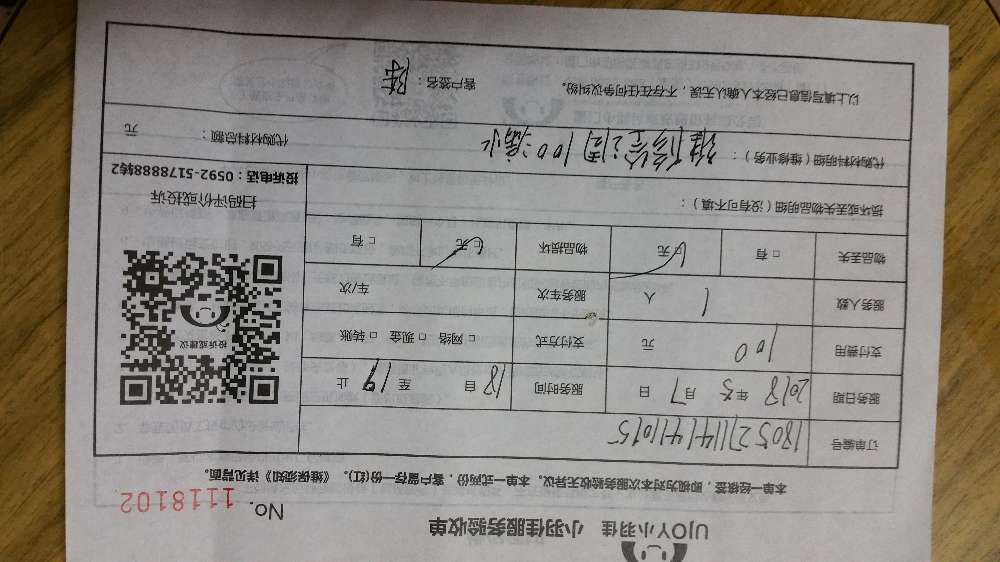 UJOY小羽佳 小羽佳服务验收单
No. 1118102
本单一经接签,即视为对本次服务验收无异议。本单一式两份,客户留存一份(红)。《维保须知》详见背面。
订单编号 180527114141015
服务日期 2018 年 5 月 7 日 服务时间 18 自 至 19 止
支付费用 100 元 支付方式 □ 网络 □ 现金 □ 转账
服务人数 1 人 服务车次 车/次
物品丢失 □ 有 □ 无 物品损坏 □ 无 □ 有
投诉或建议
扫码评价或投诉
投诉电话:0592-5178888转2
损坏或丢失物品明细(没有可不填):
代购材料明细(维修业务): 维修 100
代购材料总额: 元
以上填写信息已经本人确认无误,不存在任何争议纠纷。 客户签名: 陈